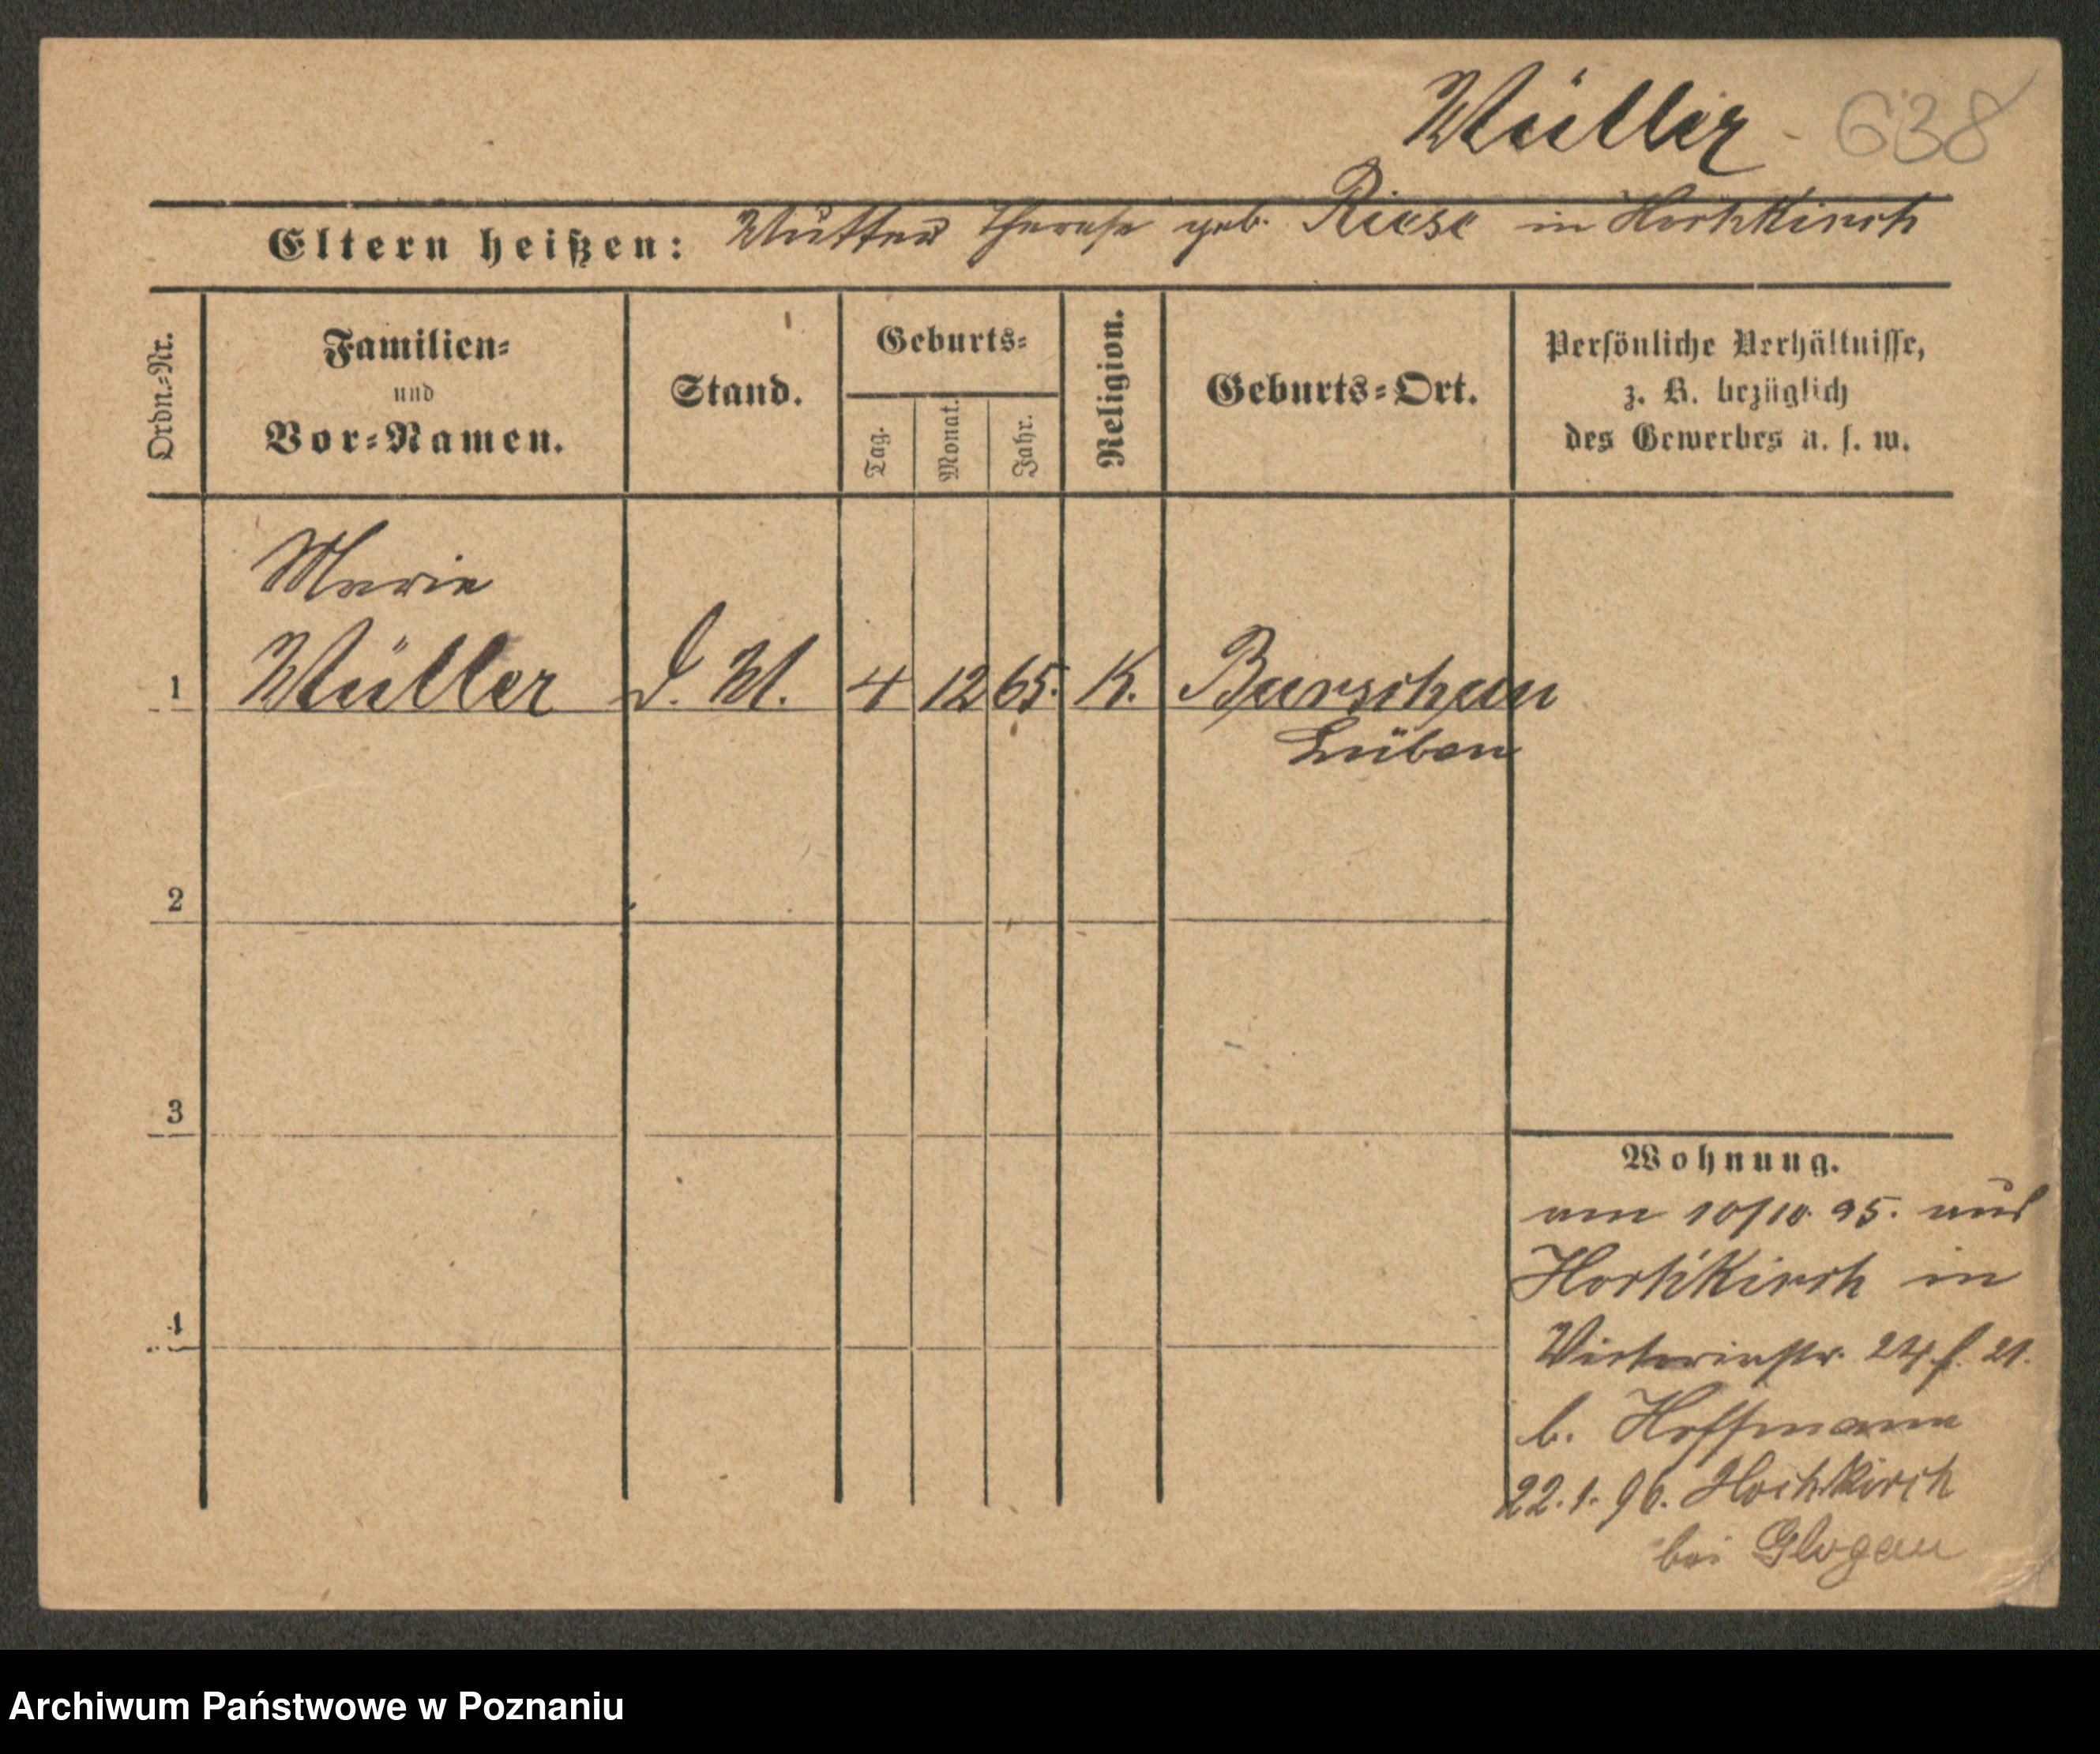 Müller - 638
Eltern heißen: Mutter Therese geb. Riese in Hochkirch
Ordn.-Nr.
Familien-
und
Vor-Namen.
Stand.
Geburts-
Tag.
Monat.
Jahr.
Religion.
Geburts-Ort.
Persönliche Verhältnisse,
z. B. bezüglich
des Gewerbes u. s. w.
Marie
1 Müller D. M. 4 12 65. K. Barschau
Lüben
2
3
4
Wohnung.
am 10/10. 95. aus
Hochkirch in
Victoriastr. 24. 21.
b. Hoffmann
22.1.96. Hochkirch
bei Glogau
Archiwum Państwowe w Poznaniu